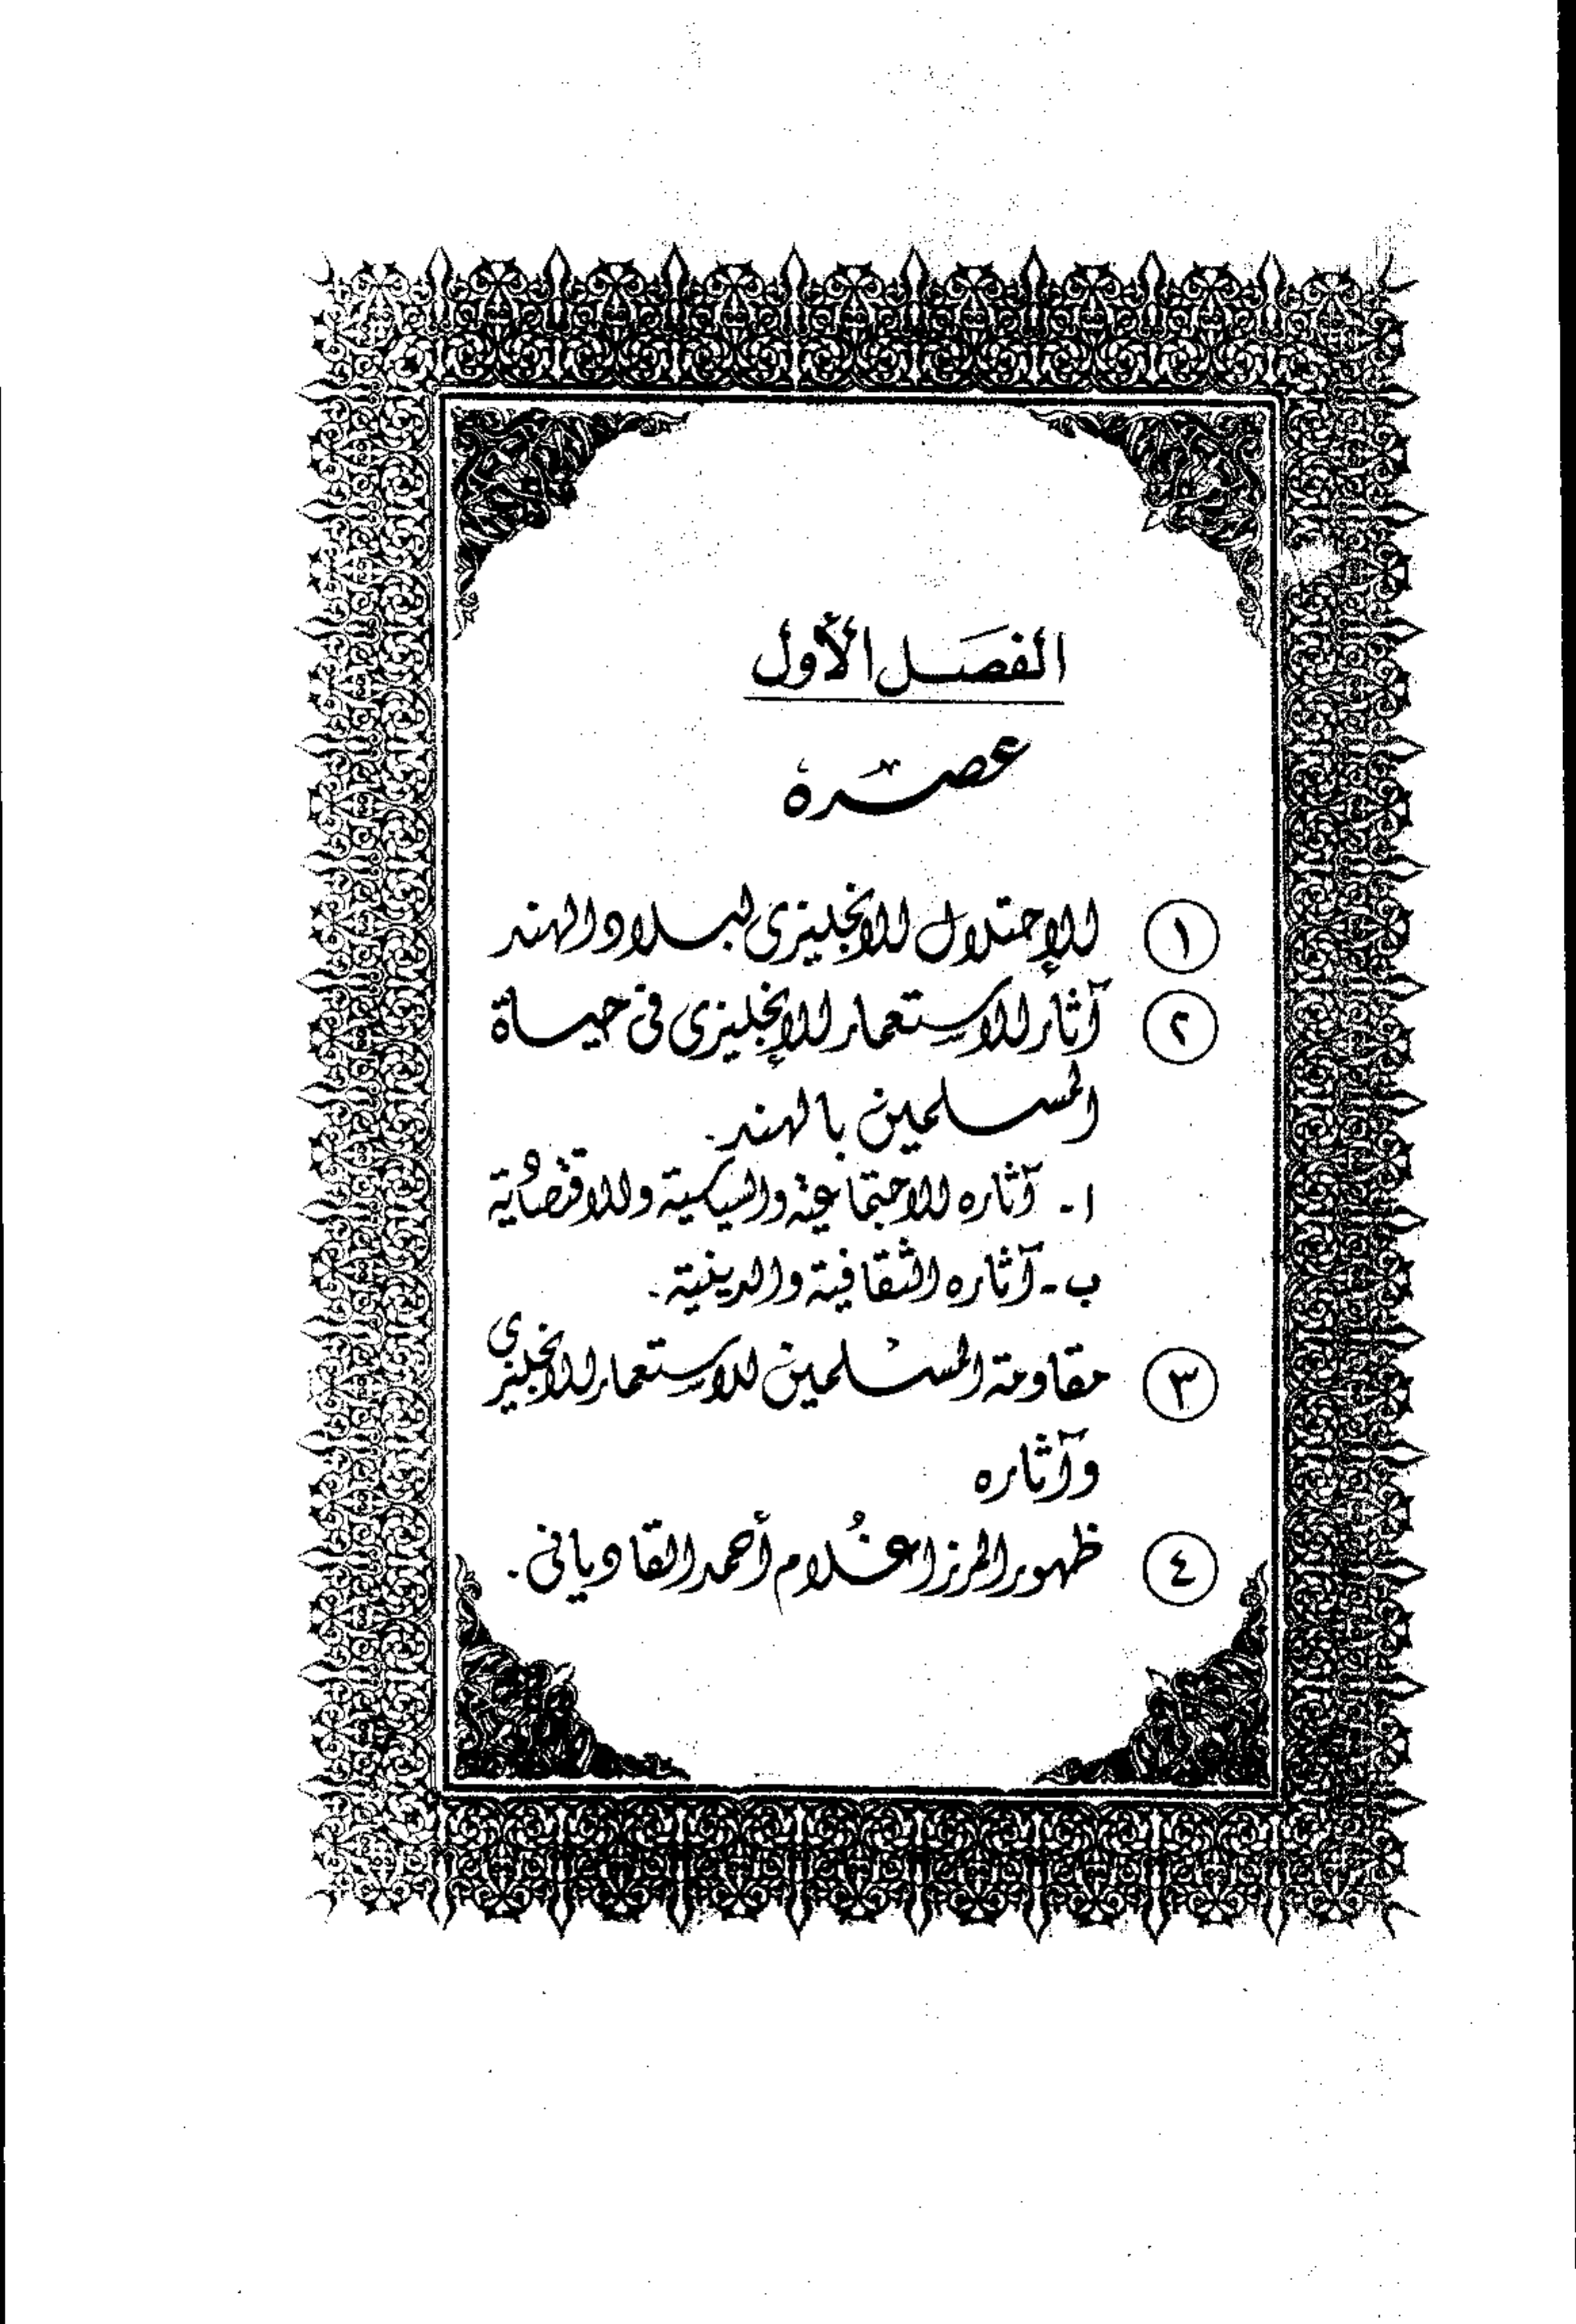 الفصل الأول
عصره
١ الإحتلال الانجليزى لبلاد الهند
٢ آثار الاستعمار الإنجليزى فى حياة
المسلمين بالهند.
ا - آثاره الاجتماعية والسياسية والاقتصادية
ب - آثاره الثقافية والدينية.
٣ مقاومة المسلمين للاستعمار الانجليزي
وآثاره
٤ ظهور المرزا غلام أحمد القاديانى.